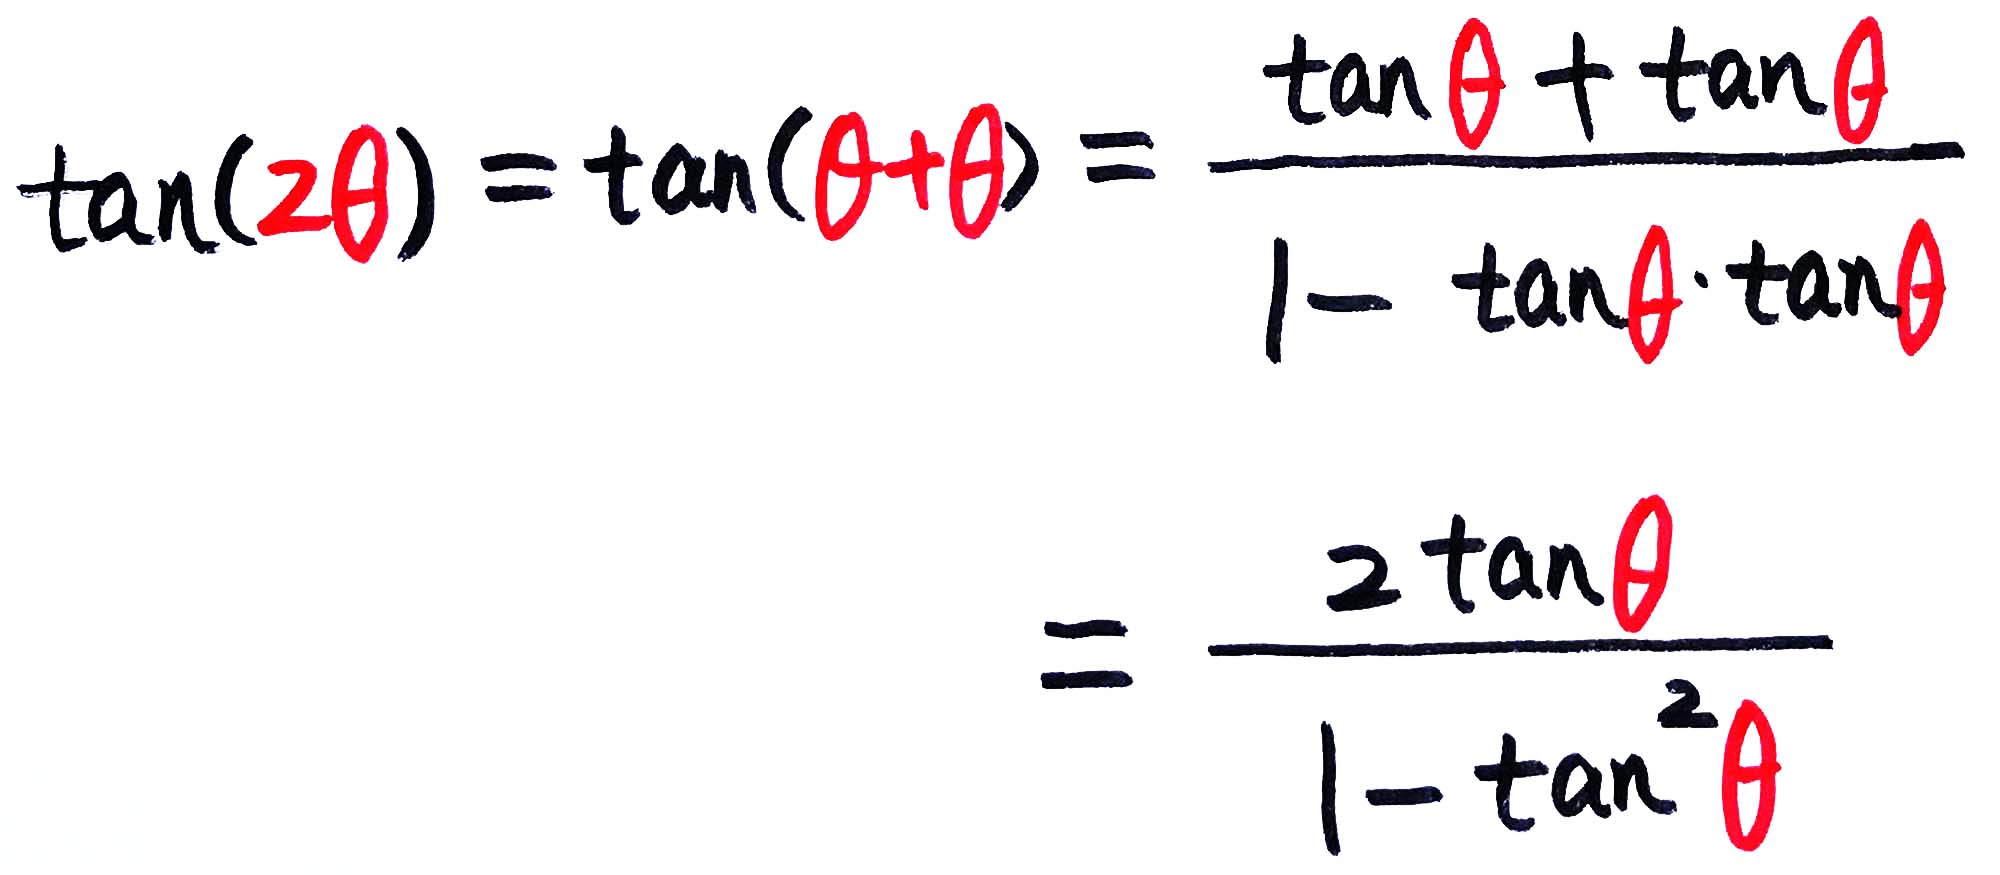 tan(2θ) = tan(θ+θ) = (tanθ + tanθ) / (1 - tanθ · tanθ)
= (2 tanθ) / (1 - tan²θ)